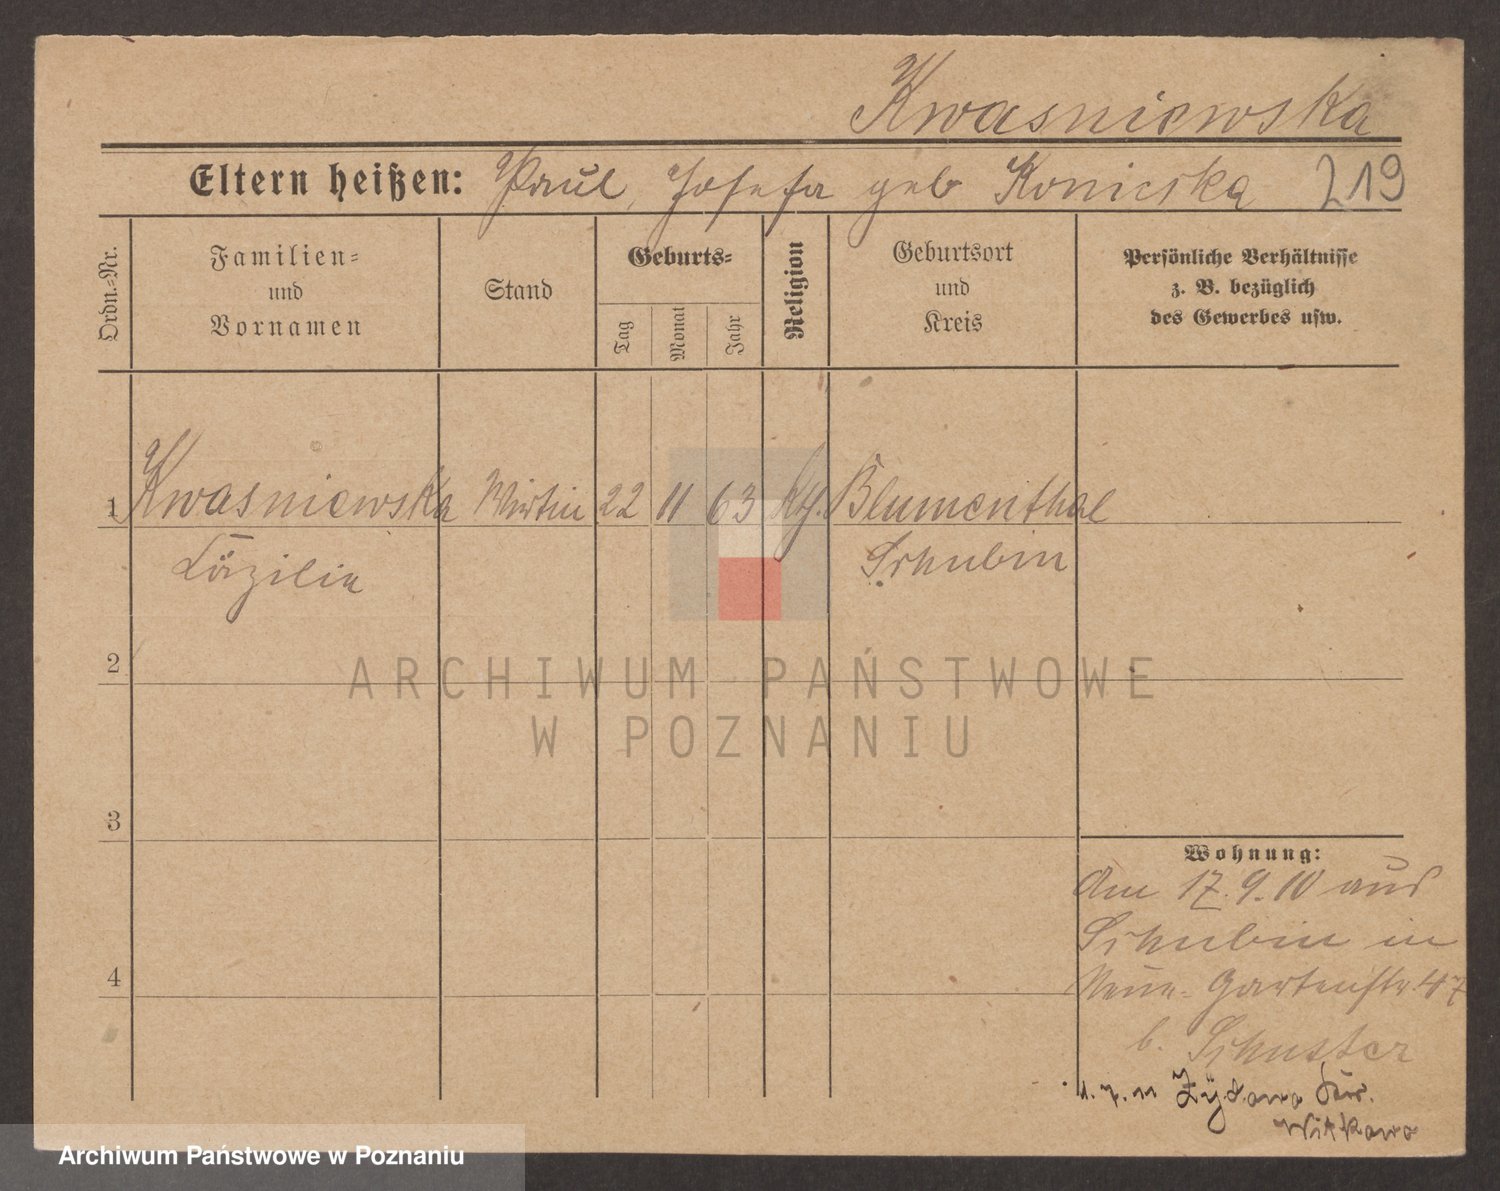 Kwasniewska
Eltern heißen: Paul, Josefa geb Konicska 219
Ordn.-Nr.
Familien-
und
Vornamen
Stand
Geburts-
Tag
Monat
Jahr
Religion
Geburtsort
und
Kreis
Persönliche Verhältnisse
z. B. bezüglich
des Gewerbes usw.
1 Kwasniewska Wirtin 22 11 63 kth. Blumenthal
Cäzilia Schubin
2
3
4
Wohnung:
Am 17.9.10 aus
Schubin in
Neue-Gartenstr. 47
b. Schuster
Zÿdowo
Witkowo
ARCHIWUM PAŃSTWOWE
W POZNANIU
Archiwum Państwowe w Poznaniu